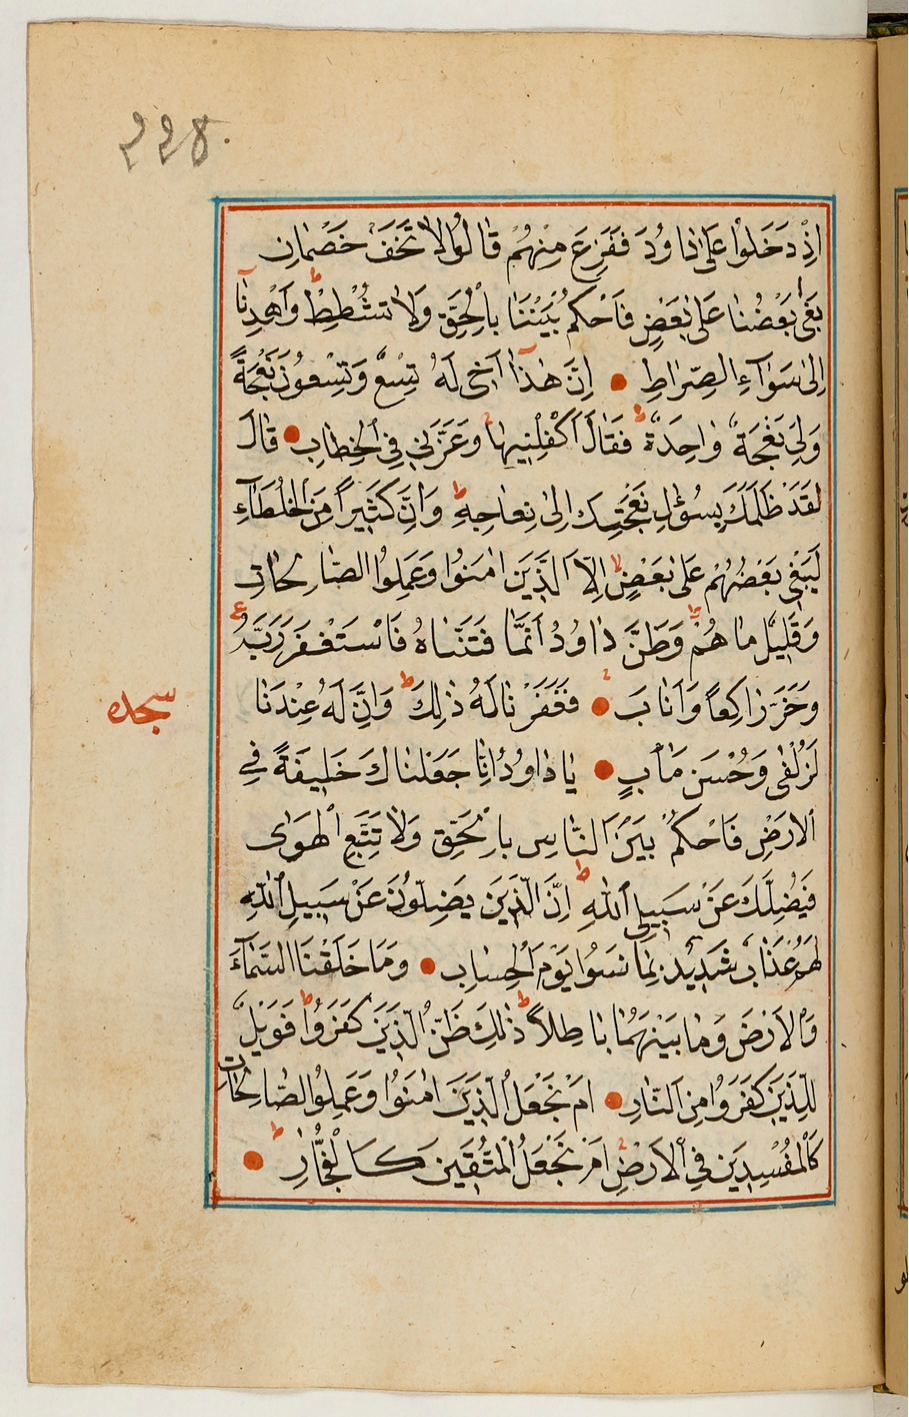 228.
اِذْ دَخَلُوا عَلٰى دَاوُدَ فَفَزِعَ مِنْهُمْ قَالُوا لَا تَخَفْ خَصْمَانِ
بَغٰى بَعْضُنَا عَلٰى بَعْضٍ فَاحْكُمْ بَيْنَنَا بِالْحَقِّ وَلَا تُشْطِطْ ط وَاهْدِنَا
اِلٰى سَوَاءِ الصِّرَاطِ اِنَّ هٰذَا اَخِي لَهُ تِسْعٌ وَتِسْعُونَ نَعْجَةً
وَلِيَ نَعْجَةٌ وَاحِدَةٌ ط فَقَالَ اَكْفِلْنِيهَا وَعَزَّنِي فِي الْخِطَابِ قَالَ
لَقَدْ ظَلَمَكَ بِسُؤَالِ نَعْجَتِكَ اِلٰى نِعَاجِهِ ط وَاِنَّ كَثِيرًا مِنَ الْخُلَطَاءِ
لَيَبْغِي بَعْضُهُمْ عَلٰى بَعْضٍ اِلَّا الَّذِينَ اٰمَنُوا وَعَمِلُوا الصَّالِحَاتِ
وَقَلِيلٌ مَا هُمْ ط وَظَنَّ دَاوُدُ اَنَّمَا فَتَنَّاهُ فَاسْتَغْفَرَ رَبَّهُ ع
وَخَرَّ رَاكِعًا وَاَنَابَ فَغَفَرْنَا لَهُ ذٰلِكَ ط وَاِنَّ لَهُ عِنْدَنَا
سجده
لَزُلْفٰى وَحُسْنَ مَاٰبٍ يَا دَاوُدُ اِنَّا جَعَلْنَاكَ خَلِيفَةً فِي
الْاَرْضِ فَاحْكُمْ بَيْنَ النَّاسِ بِالْحَقِّ وَلَا تَتَّبِعِ الْهَوٰى
فَيُضِلَّكَ عَنْ سَبِيلِ اللّٰهِ ط اِنَّ الَّذِينَ يَضِلُّونَ عَنْ سَبِيلِ اللّٰهِ
لَهُمْ عَذَابٌ شَدِيدٌ بِمَا نَسُوا يَوْمَ الْحِسَابِ وَمَا خَلَقْنَا السَّمَاءَ
وَالْاَرْضَ وَمَا بَيْنَهُمَا بَاطِلًا ط ذٰلِكَ ظَنُّ الَّذِينَ كَفَرُوا ط فَوَيْلٌ
لِلَّذِينَ كَفَرُوا مِنَ النَّارِ اَمْ نَجْعَلُ الَّذِينَ اٰمَنُوا وَعَمِلُوا الصَّالِحَاتِ
كَالْمُفْسِدِينَ فِي الْاَرْضِ اَمْ نَجْعَلُ الْمُتَّقِينَ كَالْفُجَّارِ ط